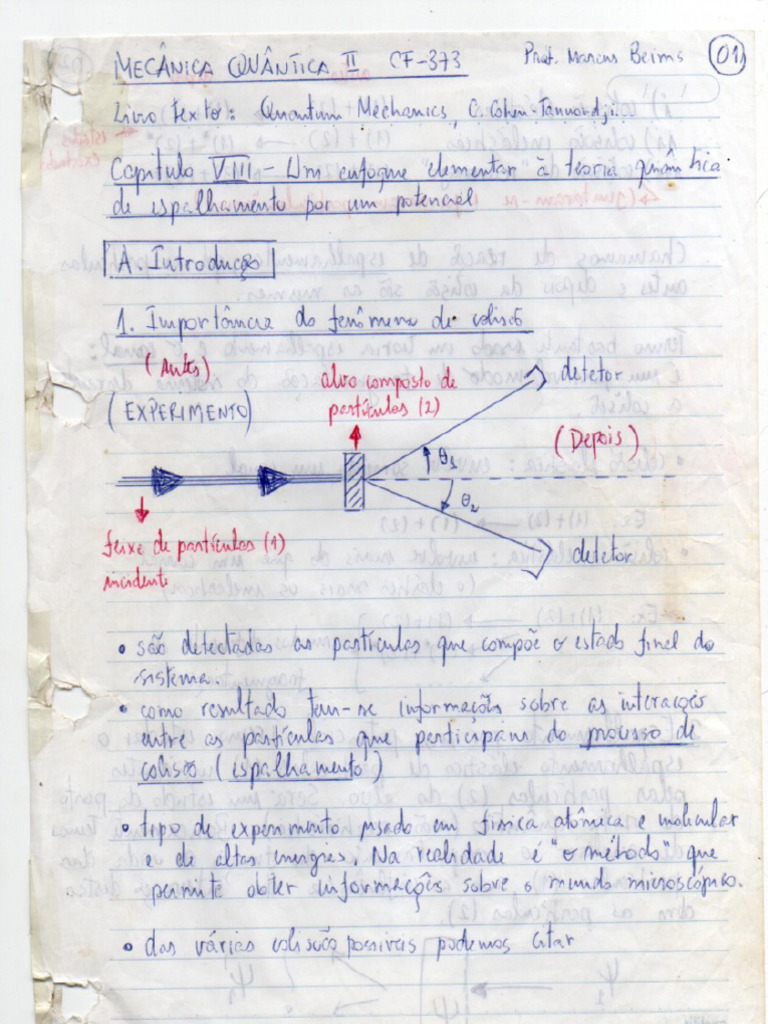 MECÂNICA QUÂNTICA II CF-373 Prof. Marcus Beims 01
Livro texto: Quantum Mechanics, C. Cohen-Tannoudji
Capítulo VIII - Um enfoque elementar à teoria quântica
de espalhamento por um potencial
A. Introdução
1. Importância do fenômeno de colisão
(Antes)
(EXPERIMENTO)
alvo composto de
partículas (2)
detetor
(Depois)
θ1
θ2
feixe de partículas (1)
incidente
detetor
• são detectadas as partículas que compõe o estado final do
sistema.
• como resultado tem-se informações sobre as interações
entre as partículas que participam do processo de
colisão (espalhamento)
• tipo de experimento usado em física atômica e molecular
e de altas energias. Na realidade é "o método" que
permite obter informações sobre o mundo microscópico.
• das várias colisões possíveis podemos citar